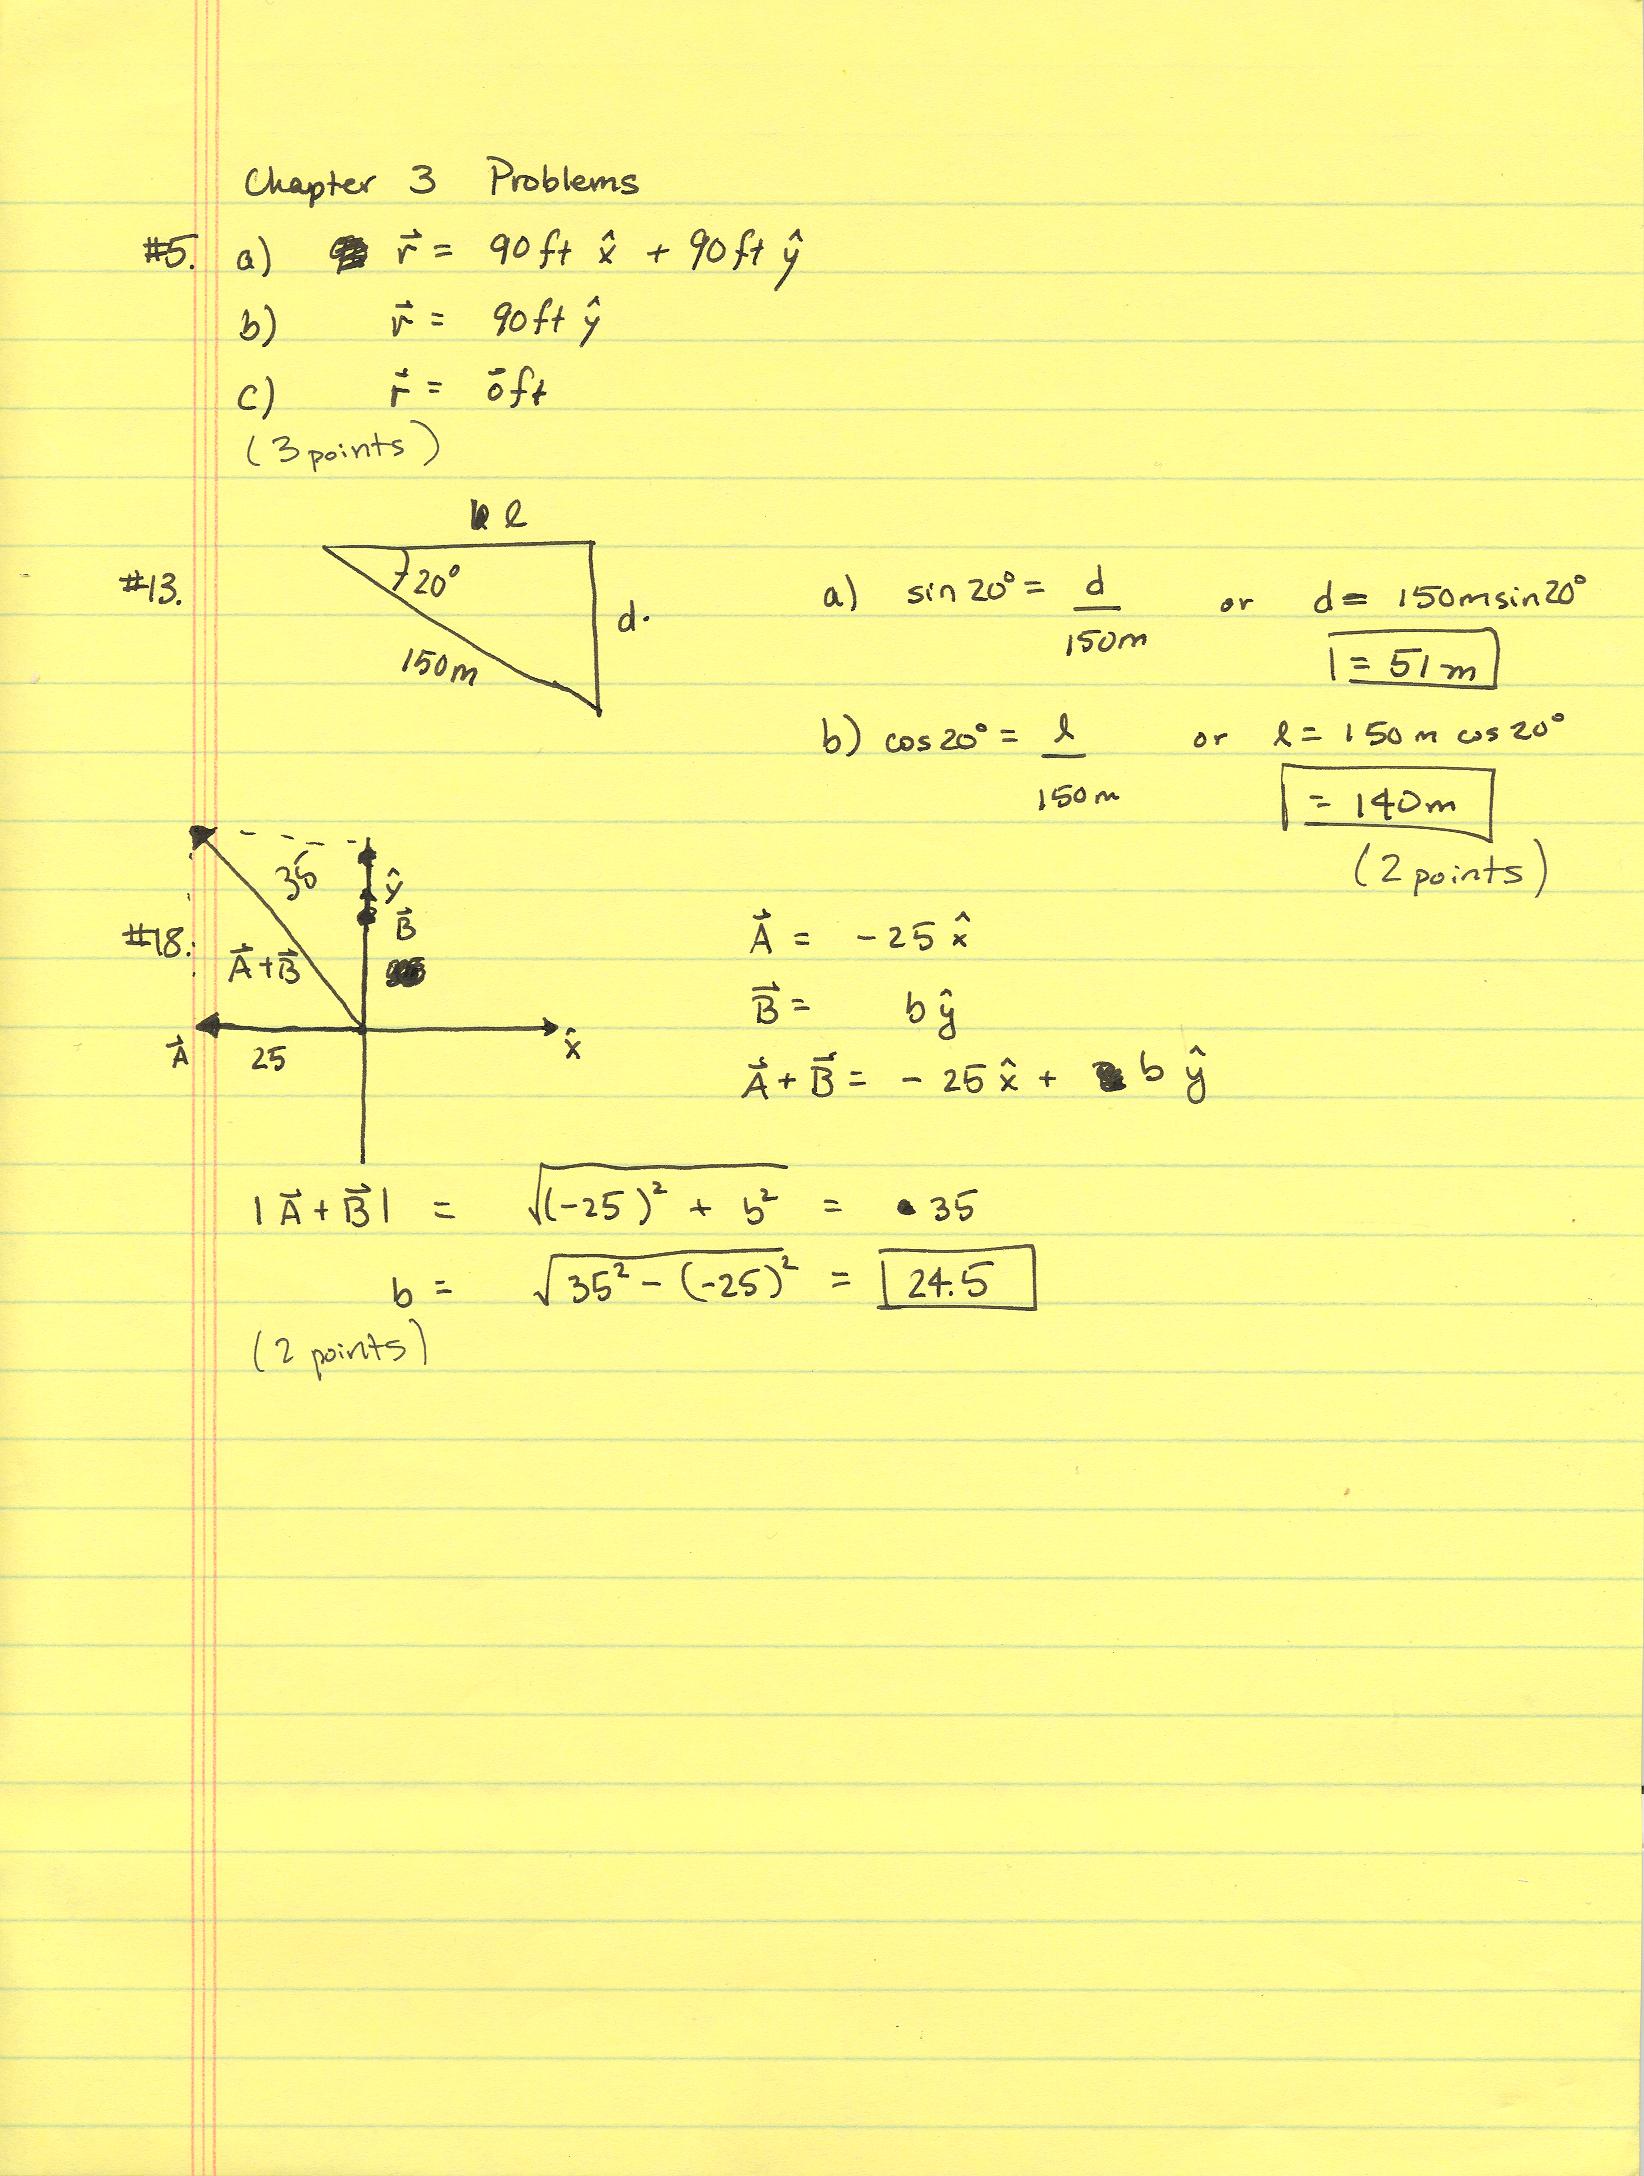 Chapter 3 Problems
#5. a) r⃗ = 90ft x̂ + 90ft ŷ
b) r⃗ = 90ft ŷ
c) r⃗ = 0⃗ ft
(3 points)
ℓ
#13. 20°
d.
150m
a) sin 20° = d/150m or d = 150m sin 20°
= 51 m
b) cos 20° = ℓ/150m or ℓ = 150 m cos 20°
= 140m
(2 points)
35
ŷ
B⃗
#18.
A⃗ + B⃗
A⃗ 25 x̂
A⃗ = -25 x̂
B⃗ = b ŷ
A⃗ + B⃗ = -25 x̂ + b ŷ
|A⃗ + B⃗| = √((-25)² + b²) = 35
b = √(35² - (-25)²) = 24.5
(2 points)